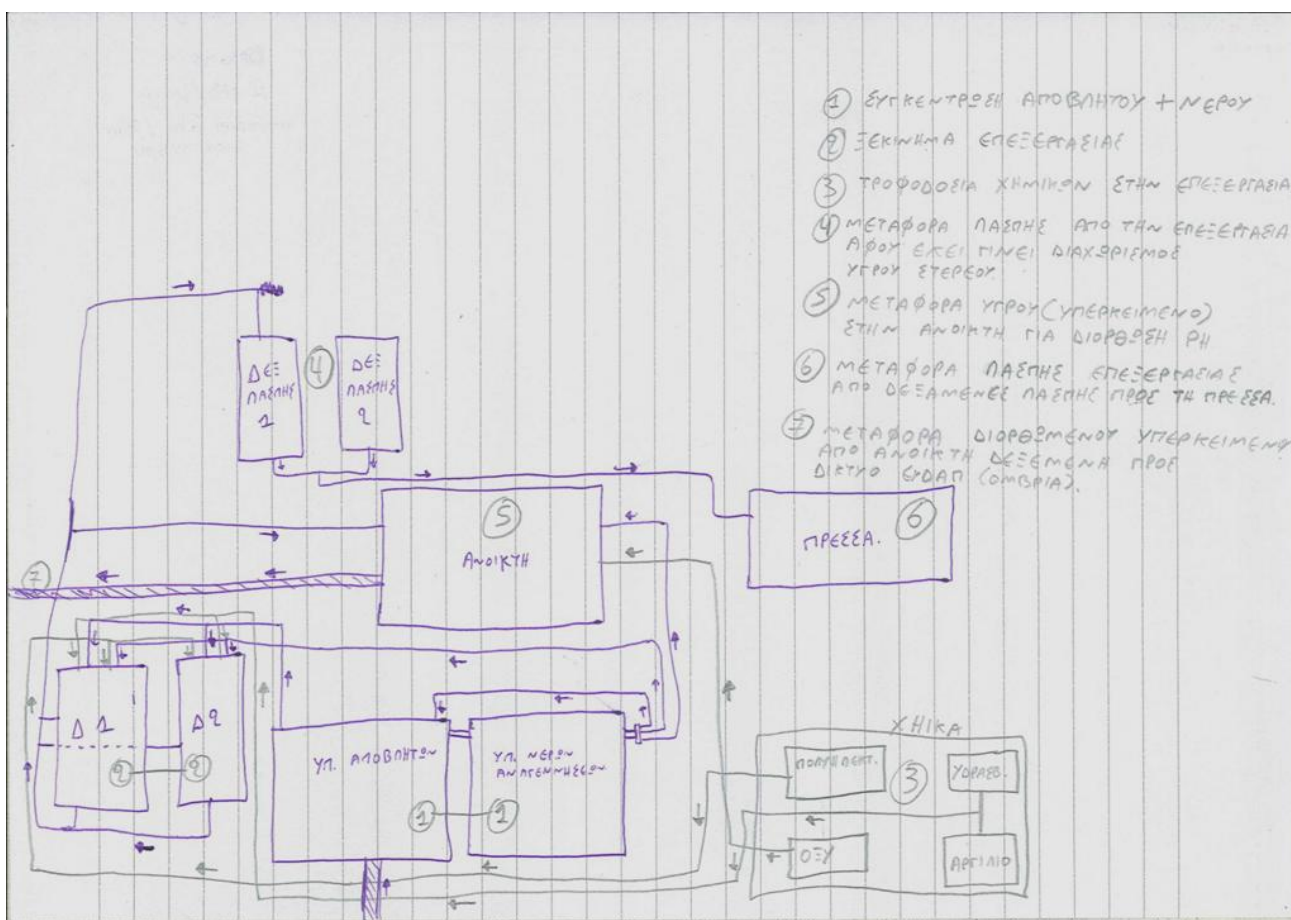 ① ΣΥΓΚΕΝΤΡΩΣΗ ΑΠΟΒΛΗΤΟΥ + ΝΕΡΟΥ
② ΞΕΚΙΝΗΜΑ ΕΠΕΞΕΡΓΑΣΙΑΣ
③ ΤΡΟΦΟΔΟΣΙΑ ΧΗΜΙΚΩΝ ΣΤΗΝ ΕΠΕΞΕΡΓΑΣΙΑ
④ ΜΕΤΑΦΟΡΑ ΛΑΣΠΗΣ ΑΠΟ ΤΗΝ ΕΠΕΞΕΡΓΑΣΙΑ
ΑΦΟΥ ΕΧΕΙ ΓΙΝΕΙ ΔΙΑΧΩΡΙΣΜΟΣ
ΥΓΡΟΥ ΣΤΕΡΕΟΥ.
⑤ ΜΕΤΑΦΟΡΑ ΥΓΡΟΥ (ΥΠΕΡΚΕΙΜΕΝΟ)
ΣΤΗΝ ΑΝΟΙΚΤΗ ΓΙΑ ΔΙΟΡΘΩΣΗ PH
⑥ ΜΕΤΑΦΟΡΑ ΛΑΣΠΗΣ ΕΠΕΞΕΡΓΑΣΙΑΣ
ΑΠΟ ΔΕΞΑΜΕΝΕΣ ΛΑΣΠΗΣ ΠΡΟΣ ΤΗ ΠΡΕΣΣΑ.
⑦ ΜΕΤΑΦΟΡΑ ΔΙΟΡΘΩΜΕΝΟΥ ΥΠΕΡΚΕΙΜΕΝΟΥ
ΑΠΟ ΑΝΟΙΚΤΗ ΔΕΞΕΜΕΝΗ ΠΡΟΣ
ΔΙΚΤΥΟ ΕΥΔΑΠ (ΟΜΒΡΙΑ).
ΔΕΞ
ΛΑΣΠΗΣ
1
④
ΔΕΞ
ΛΑΣΠΗΣ
2
⑤
ΑΝΟΙΚΤΗ
ΠΡΕΣΣΑ.
⑥
⑦
Δ1
②
Δ2
②
ΥΠ. ΑΠΟΒΛΗΤΩΝ
①
ΥΠ. ΝΕΡΩΝ
ΑΝΑΓΕΝΝΗΣΕΩΝ
①
ΧΗΙΚΑ
ΠΟΛΥΗΛΕΚΤ.
③
ΥΔΡΑΣΒ.
ΟΞΥ
ΑΡΓΙΛΙΟ